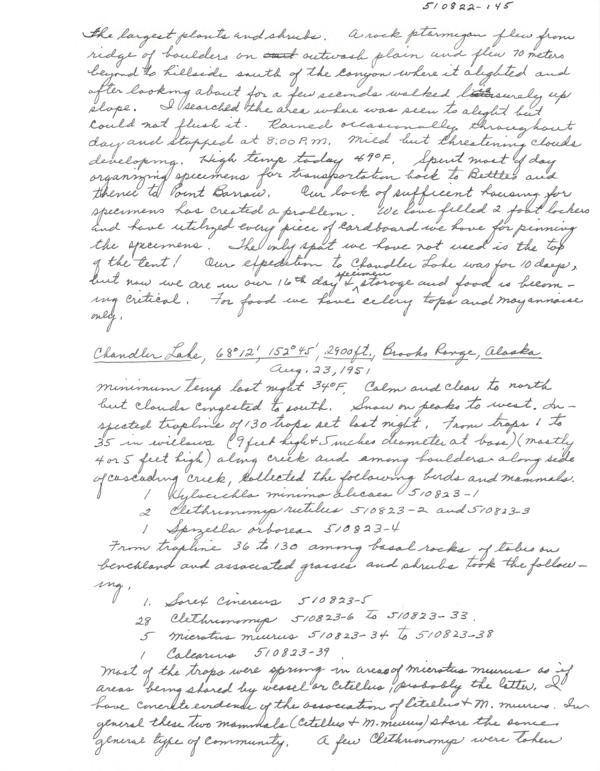 510822-145
the largest plants and shrubs. A rock ptarmigan flew from
ridge of boulders on outwash plain and flew 70 meters
beyond to hillside south of the canyon where it alighted and
after looking about for a few seconds walked leisurely up
slope. I searched the area where was seen to alight but
could not flush it. Rained occasionally throughout
day and stopped at 8:00 P.M. Mild but threatening clouds
developing. High temp today 49°F. Spent most of day
organizing specimens for transportation back to Bettles and
thence to Point Barrow. Our lack of sufficient housing for
specimens has created a problem. We have filled 2 foot lockers
and have utilized every piece of cardboard we have for pinning
the specimens. The only spot we have not used is the top
of the tent! Our expedition to Chandler Lake was for 10 days,
but now we are in our 16th day & specimen storage and food is becom-
ing critical. For food we have celery tops and mayonnaise
only.
Chandler Lake, 68°12', 152°45', 2900 ft., Brooks Range, Alaska
Aug. 23, 1951
Minimum temp last night 34°F. Calm and clear to north
but clouds congested to south. Snow on peaks to west. In-
spected trapline of 130 traps set last night. From traps 1 to
35 in willows (9 feet high & 5 inches diameter at base) (mostly
4 or 5 feet high) along creek and among boulders along side
of cascading creek, collected the following birds and mammals.
1 Hylocichla minima aliciae 510823-1
2 Clethrionomys rutilus 510823-2 and 510823-3
1 Spizella arborea 510823-4
From trapline 36 to 130 among basal rocks of talus on
benchland and associated grasses and shrubs took the follow-
ing.
1. Sorex cinereus 510823-5
28 Clethrionomys 510823-6 to 510823-33
5 Microtus miurus 510823-34 to 510823-38
1 Calcarius 510823-39
Most of the traps were sprung in areas of Microtus miurus as if
areas being shared by weasel or Citellus; probably the latter. I
have concrete evidence of the association of Citellus & M. miurus. In
general these two mammals (Citellus & M. miurus) share the same
general type of community. A few Clethrionomys were taken